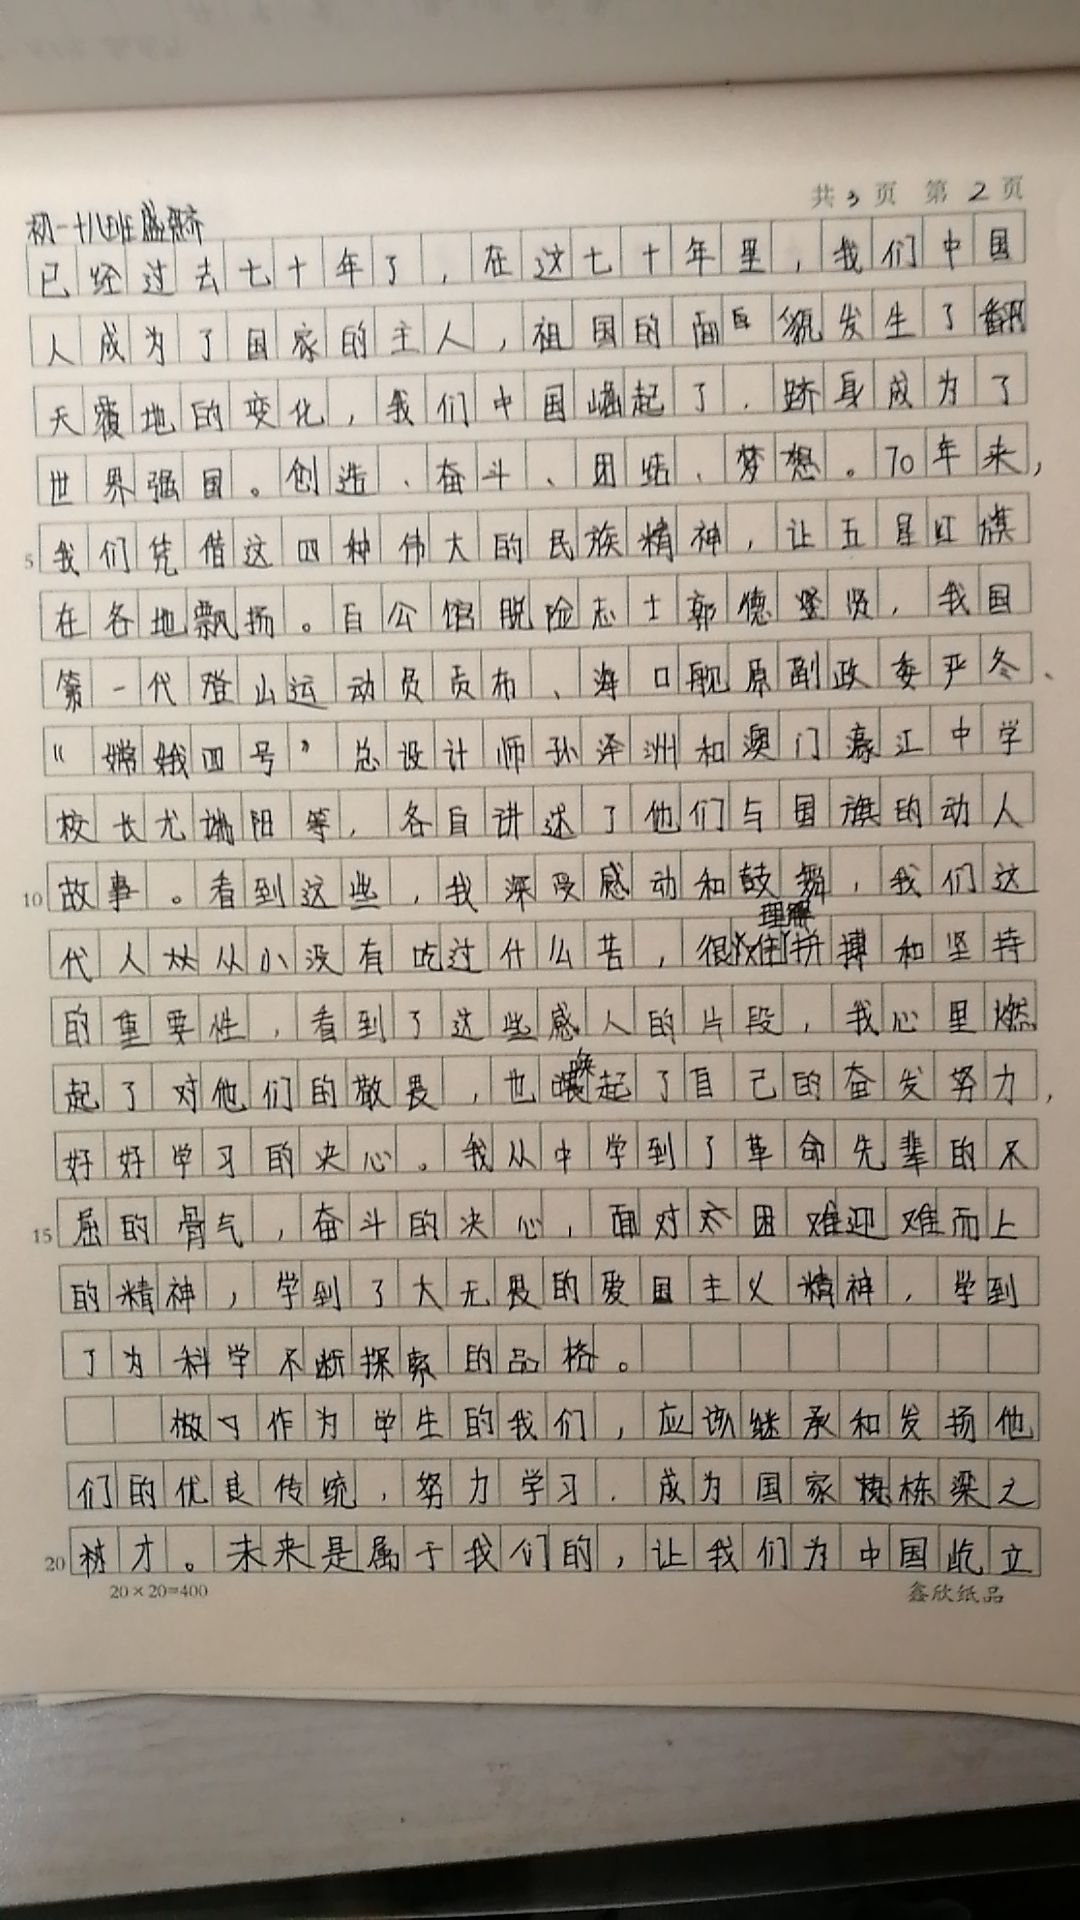 共3页 第2页
初一十八班盛
已经过去七十年了，在这七十年里，我们中国
人成为了国家的主人，祖国的面貌发生了翻
天覆地的变化，我们中国崛起了．跻身成为了
世界强国。创造、奋斗、团结、梦想。70年来，
5 我们凭借这四种伟大的民族精神，让五星红旗
在各地飘扬。白公馆脱险志士郭德贤，我国
第一代登山运动员贡布、海口舰原副政委严冬、
“嫦娥四号”总设计师孙泽洲和澳门濠江中学
校长尤端阳等，各自讲述了他们与国旗的动人
10 故事。看到这些，我深受感动和鼓舞，我们这
代人从小没有吃过什么苦，很难理解拼搏和坚持
的重要性，看到了这些感人的片段，我心里燃
起了对他们的敬畏，也唤起了自己的奋发努力，
好好学习的决心。我从中学到了革命先辈的不
15 屈的骨气，奋斗的决心，面对困难迎难而上
的精神，学到了大无畏的爱国主义精神，学到
了为科学不断探索的品格。
作为学生的我们，应该继承和发扬他
们的优良传统，努力学习．成为国家栋梁之
20 才。未来是属于我们的，让我们为中国屹立
20×20=400
鑫欣纸品